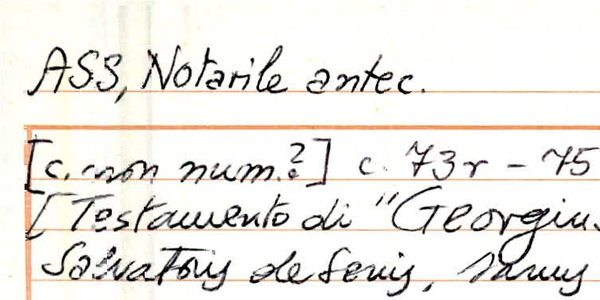 ASS, Notarile antec.
[c. non num.?] c. 73r - 75
[Testamento di "Georgius
Salvatoris de Senis,